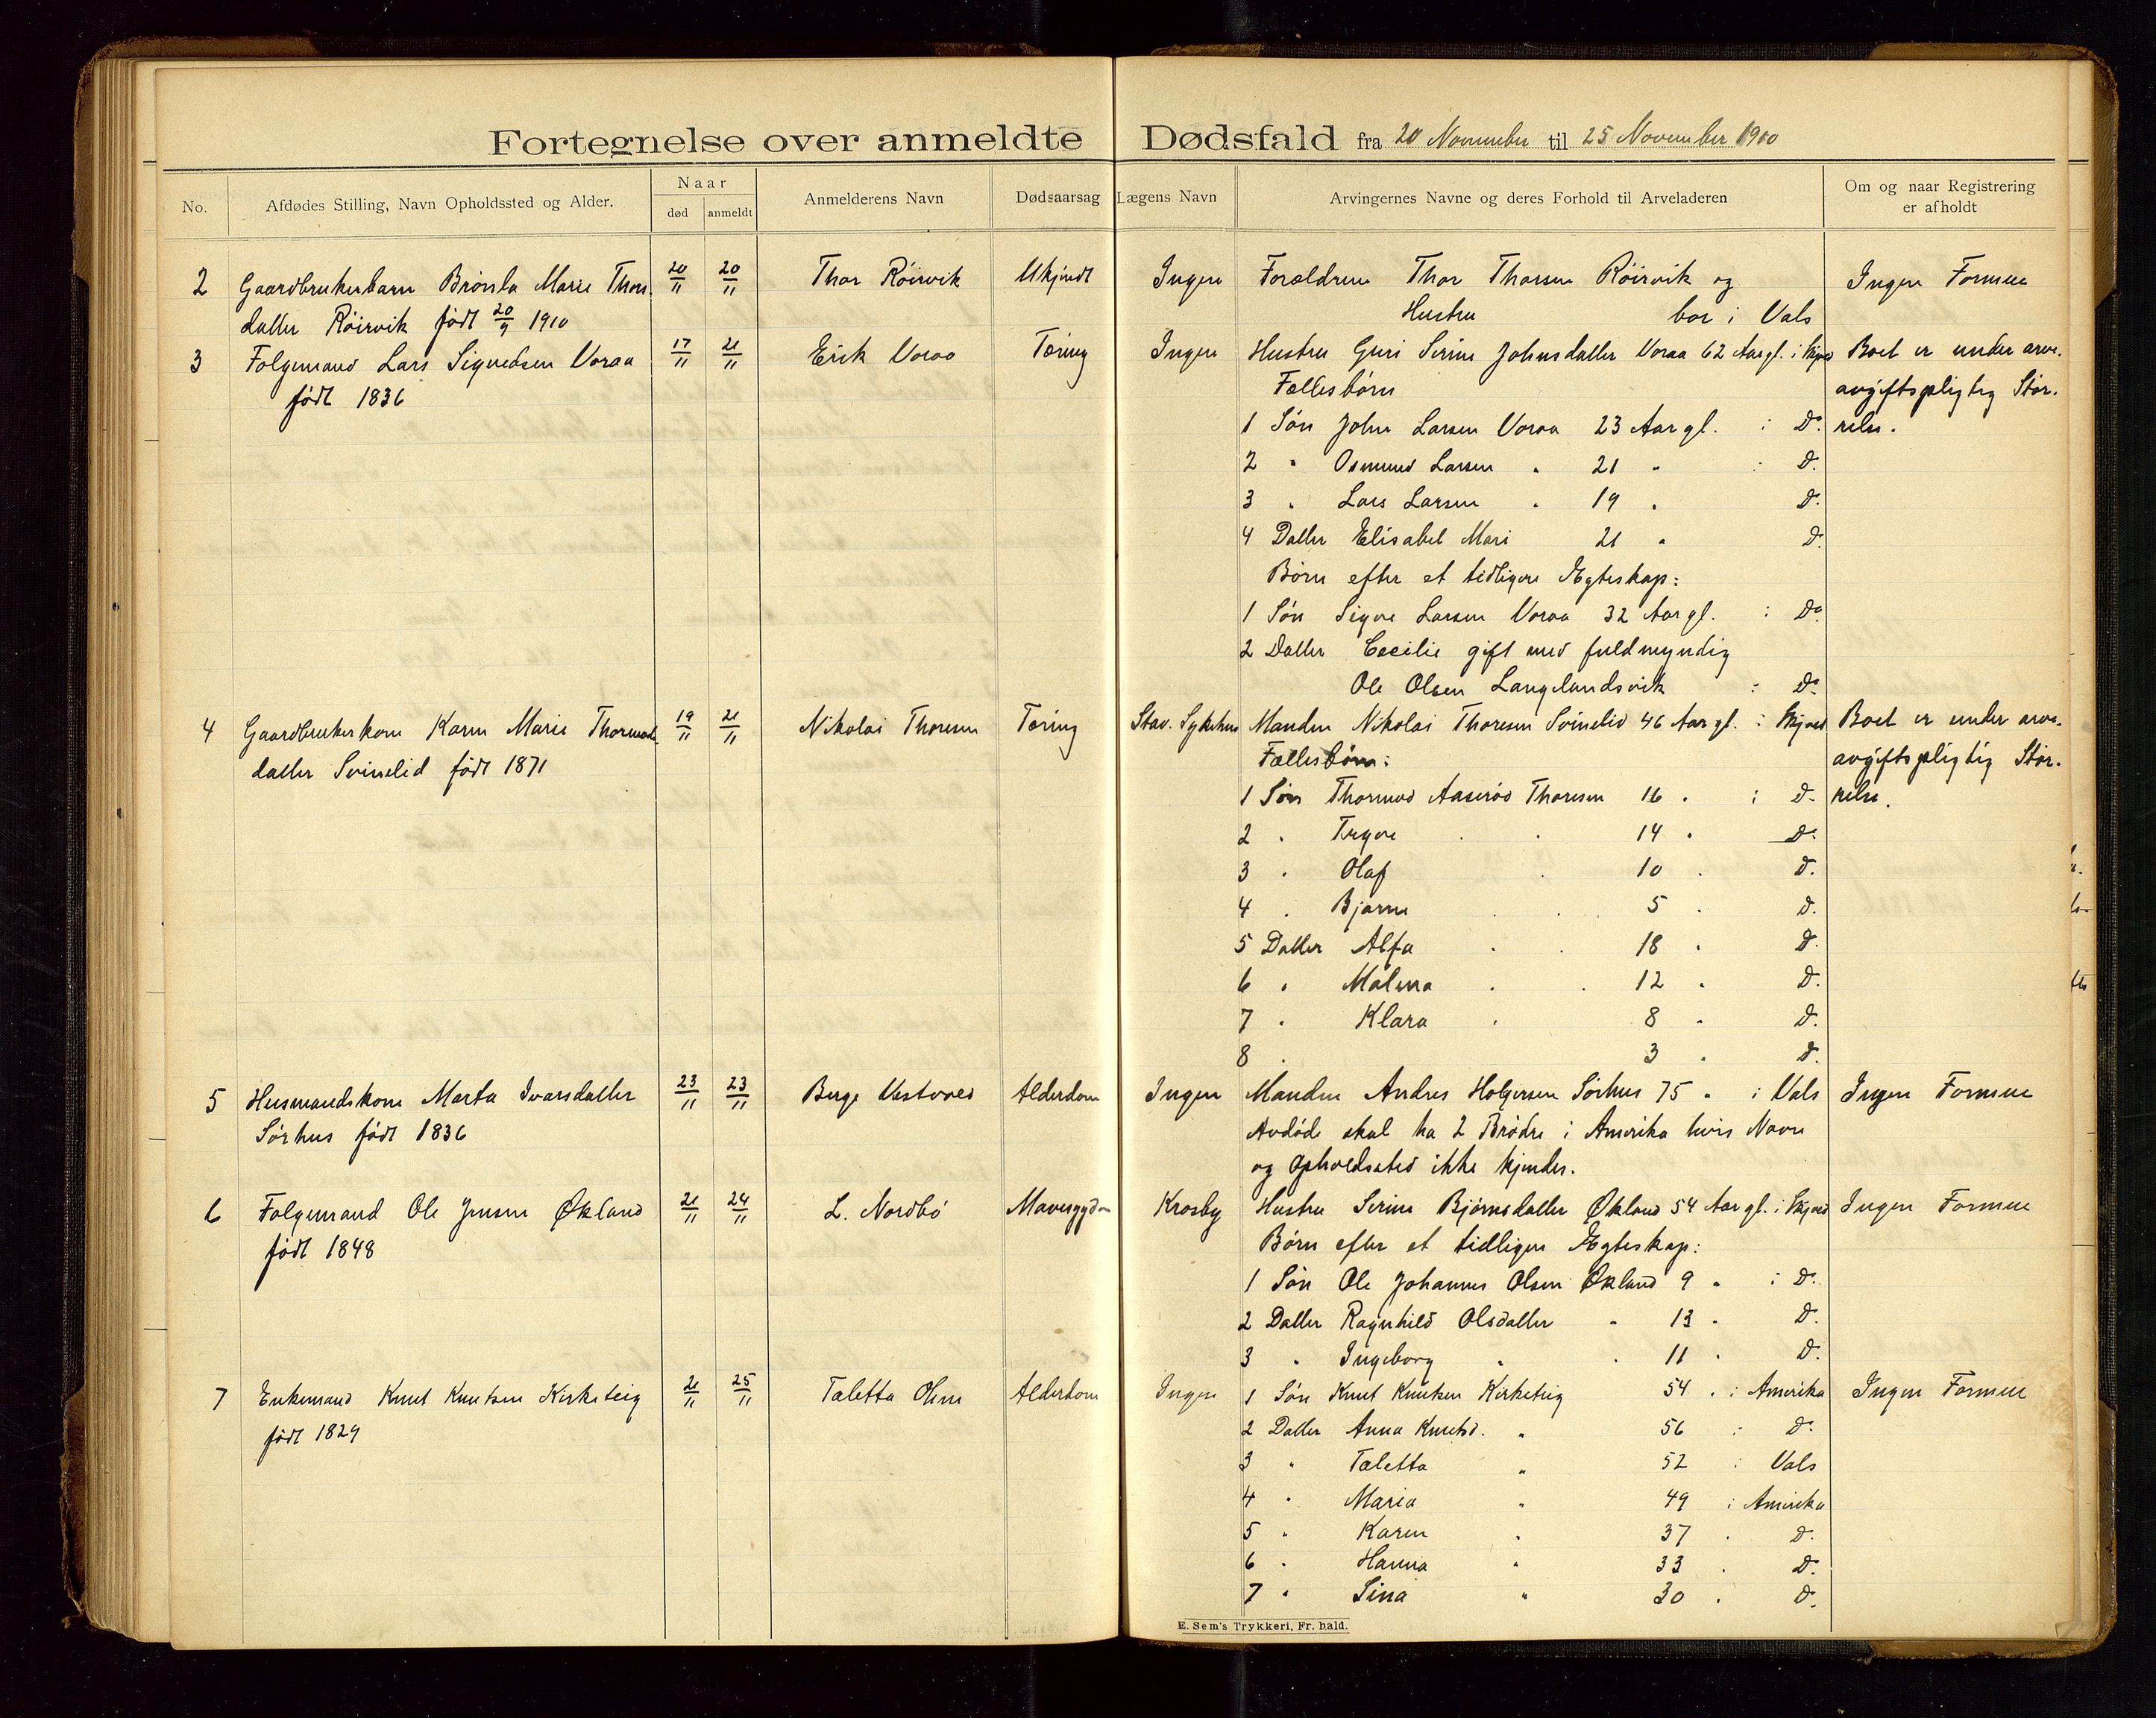 Fortegnelse over anmeldte Dødsfald fra 20 November til 25 November 1910
No. Afdødes Stilling, Navn Opholdssted og Alder. Naar død anmeldt Anmelderens Navn Dødsaarsag Lægens Navn Arvingernes Navne og deres Forhold til Arveladeren Om og naar Registrering er afholdt
2 Gaardbrukerbarn Marie Thors 20/11 20/11 Thor Röirvik Ukjendt Ingen Forældrene Thor Thorsen Röirvik og Ingen Formue
datter Röirvik födt 20/9 1910 Hustru bor i Vats
3 Folgemand Lars Sigvedsen Voraa 17/11 21/11 Erik Voraa Tæring Ingen Hustru Guri Serine Johnsdatter Voraa 62 Aar gl. i Skjold Boet er under arve-
födt 1836 Fællesbörn avgiftspligtig Stör-
1 Sön John Larsen Voraa 23 Aar gl. i Do. relse.
2 " Osmund Larsen " 21 " : Do.
3 " Lars Larsen " 19 " Do.
4 Datter Elisabet Mari 21 " Do.
Börn efter et tidligere Ægteskap:
1 Sön Sigve Larsen Voraa 32 Aar gl. : Do
2 Datter Cecilie gift med fuldmyndig
Ole Olsen Langelandsvik : Do.
4 Gaardbrukerkone Karen Marie Thormods- 19/11 21/11 Nikolai Thoresen Tæring Stav. Sykehus Manden Nikolai Thoresen Svinelid 46 Aar gl. i Skjold Boet er under arve-
datter Svinelid födt 1871 Fællesbörn: avgiftspligtig Stör-
1 Sön Thormod Aaseröd Thoresen 16 " i Do. relse.
2 " Trygve " " 14 " Do.
3 " Olaf " 10 " Do.
4 " Bjarne " " 5 " Do.
5 Datter Alfa " " 18 " Do.
6 " Malena " " 12 " Do.
7 " Klara " 8 " Do.
8 " 3 " Do.
5 Husmandskone Marta Ivarsdatter 23/11 23/11 Berge Alderdom Ingen Manden Andres Holgersen Sörhus 75 " i Vats Ingen Formue
Sörhus födt 1836 Avdöde skal ha 2 Brödre i Amerika hvis Navne
og Opholdssted ikke kjendes.
6 Folgemand Ole Jensen Økland 21/11 24/11 L. Nordbö Krosby Hustru Serine Björnsdatter Økland 54 Aar gl. i Skjold Ingen Formue
födt 1848 Börn efter et tidligere Ægteskap:
1 Sön Ole Johannes Olsen Økland 9 " i Do.
2 Datter Ragnhild Olsdatter " 13 " Do.
3 " Ingeborg " " 11 " Do.
7 Enkemand Knut Knutsen Kirketeig 21/11 25/11 Taletta Olsen Alderdom Ingen 1 Sön Knut Knutsen Kirketeig 54 " i Amerika Ingen Formue
födt 1829 2 Datter Anna Knutsd. " 56 : Do.
3 " Taletta " 52 : Vats
4 " Maria " 49 i Amerika
5 " Karen " 37 " Do.
6 " Hanna " 33 " Do.
7 " Sina " 30 " Do.
E. Sem's Trykkeri, Fr. hald.